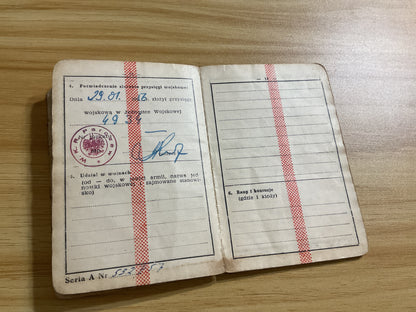 4. Poświadczenie złożenia przysięgi wojskowej
Dnia 29.01. złożył przysięgę
wojskową w Jednostce Wojskowej
4934
5. Udział w wojnach
(od — do, w jakiej armii, nazwa jed-
nostki wojskowej i zajmowane stanowi-
sko)
Seria A Nr
6. Rany i kontuzje
(gdzie i kiedy)